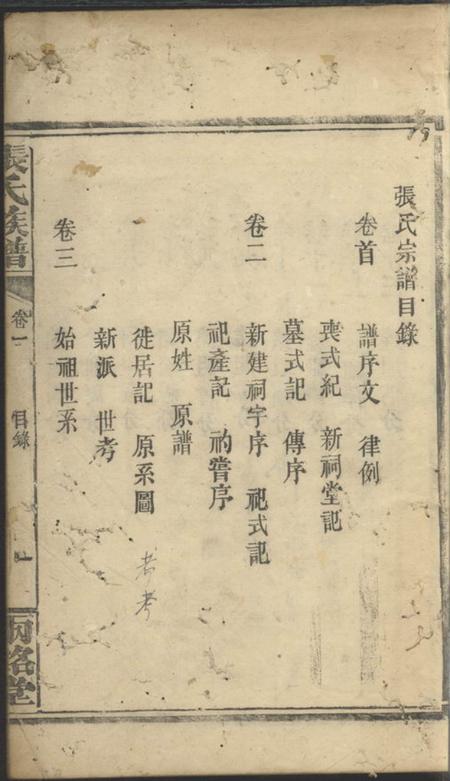 張氏宗譜目錄
卷首 譜序文 律例
喪式紀 新祠堂記
墓式記 傳序
卷二 新建祠宇序 祀式記
祀產記 礿嘗序
原姓 原譜
徙居記 原系圖
新派 世考
卷三 始祖世系
考考
張氏族譜 卷一 目錄 一 兩銘堂